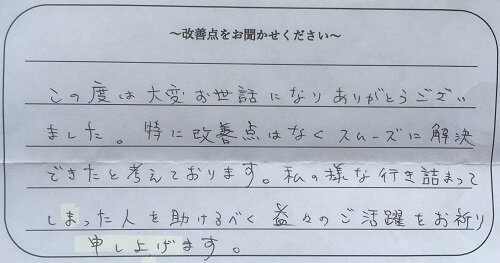 ～改善点をお聞かせください～
この度は大変お世話になりありがとうござい
ました。特に改善点はなくスムーズに解決
できたと考えております。私の様な行き詰まって
しまった人を助けるべく益々のご活躍をお祈り
申し上げます。